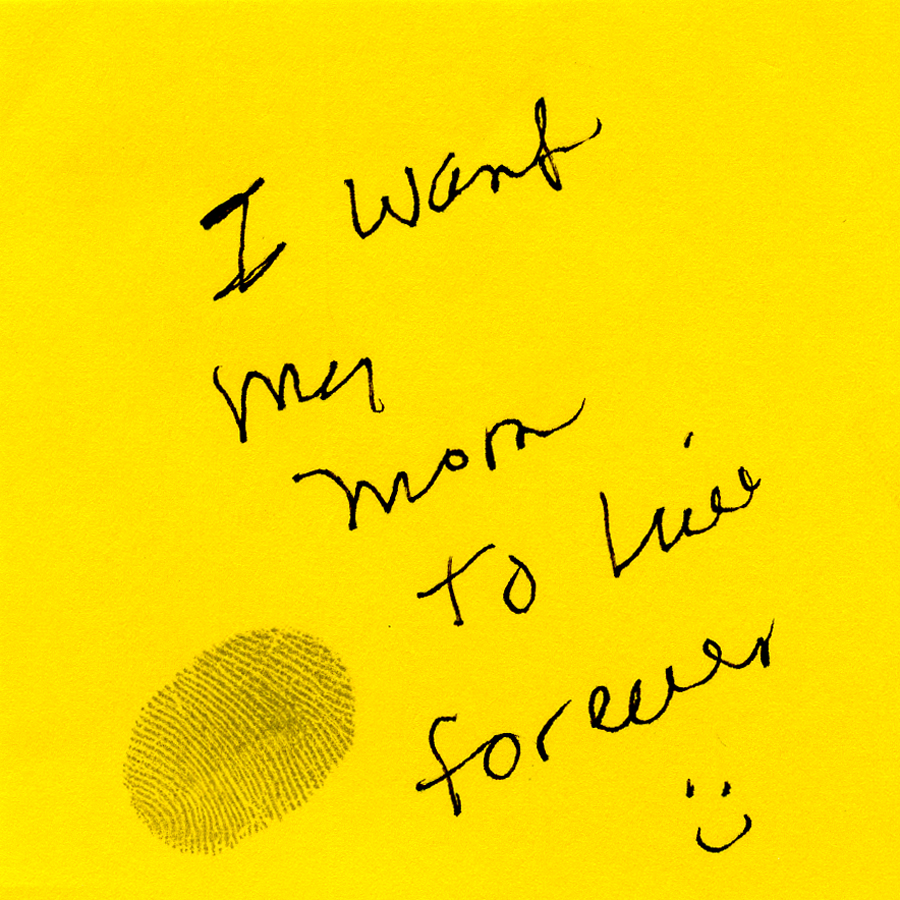 I Want
my
mom
to Live
forever